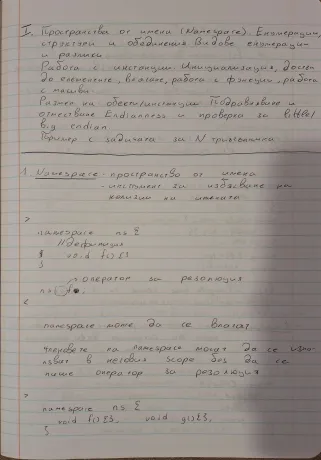 I. Пространства от имена (Namespace). Енумерации,
структури и обединения Видове енумерации
и разлики
Работа с инстанции Инициализация, достъп
до елементите, влагане, работа с функции, работа
с масиви
Размер на обекти/инстанции Подравняване и
отместване Endianness и проверка за little/
big endian
Пример с задачата за N триъгълника
1. Namespace - пространства от имена
- инструмент за избягване на
колизии на имената
>
namespace ns {
// Дефиниция
void f() {}
}
оператор за резолюция
ns::f
<
namespace може да се влагат
Членовете на namespace могат да се изпо-
лзват в неговия scope без да се
пише оператор за резолюция
>
namespace ns {
void f() {}, void g() {},
}